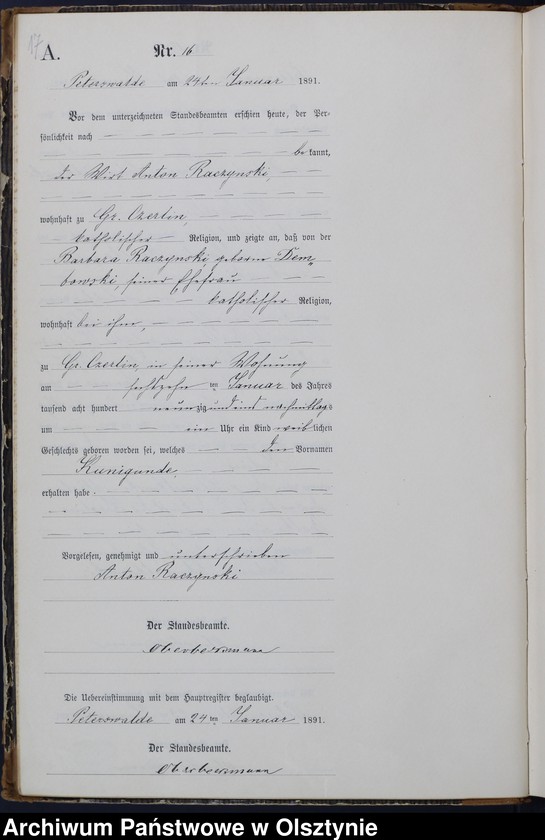 17
A.
Nr. 16
Peterswalde am 24ten Januar 1891.
Vor dem unterzeichneten Standesbeamten erschien heute, der Per-
sönlichkeit nach
bekannt,
der Wirt Anton Raczynski,
wohnhaft zu Gr. Czertin,
katholischer Religion, und zeigte an, daß von der
Barbara Raczynski geborne Dem„
bowski, seiner Ehefrau
katholischer Religion,
wohnhaft bei ihm,
zu Gr. Czertin, in seiner Wohnung
am sechszehn ten Januar des Jahres
tausend acht hundert neunzig und eins nachmittags
um ein Uhr ein Kind weiblichen
Geschlechts geboren worden sei, welches den Vornamen
Kunigunde
erhalten habe.
Vorgelesen, genehmigt und unterschrieben
Anton Raczynski
Der Standesbeamte.
Die Uebereinstimmung mit dem Hauptregister beglaubigt.
Peterswalde am 24 ten Januar 1891.
Der Standesbeamte.
Archiwum Państwowe w Olsztynie